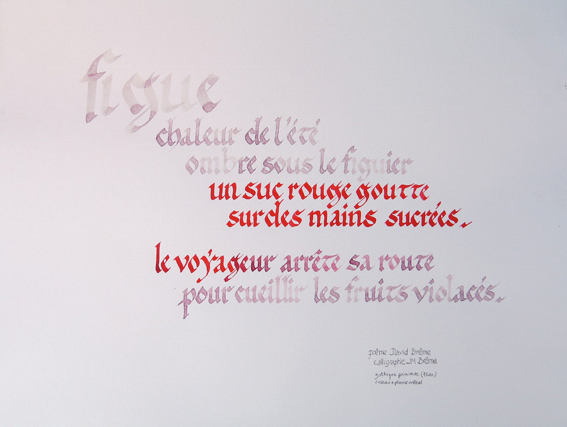 figue
chaleur de l'été
ombre sous le figuier
un suc rouge goutte
sur des mains sucrées.
le voyageur arrête sa route
pour cueillir les fruits violacés.
poème David Brême
calligraphie JM Brême
gothique primitive